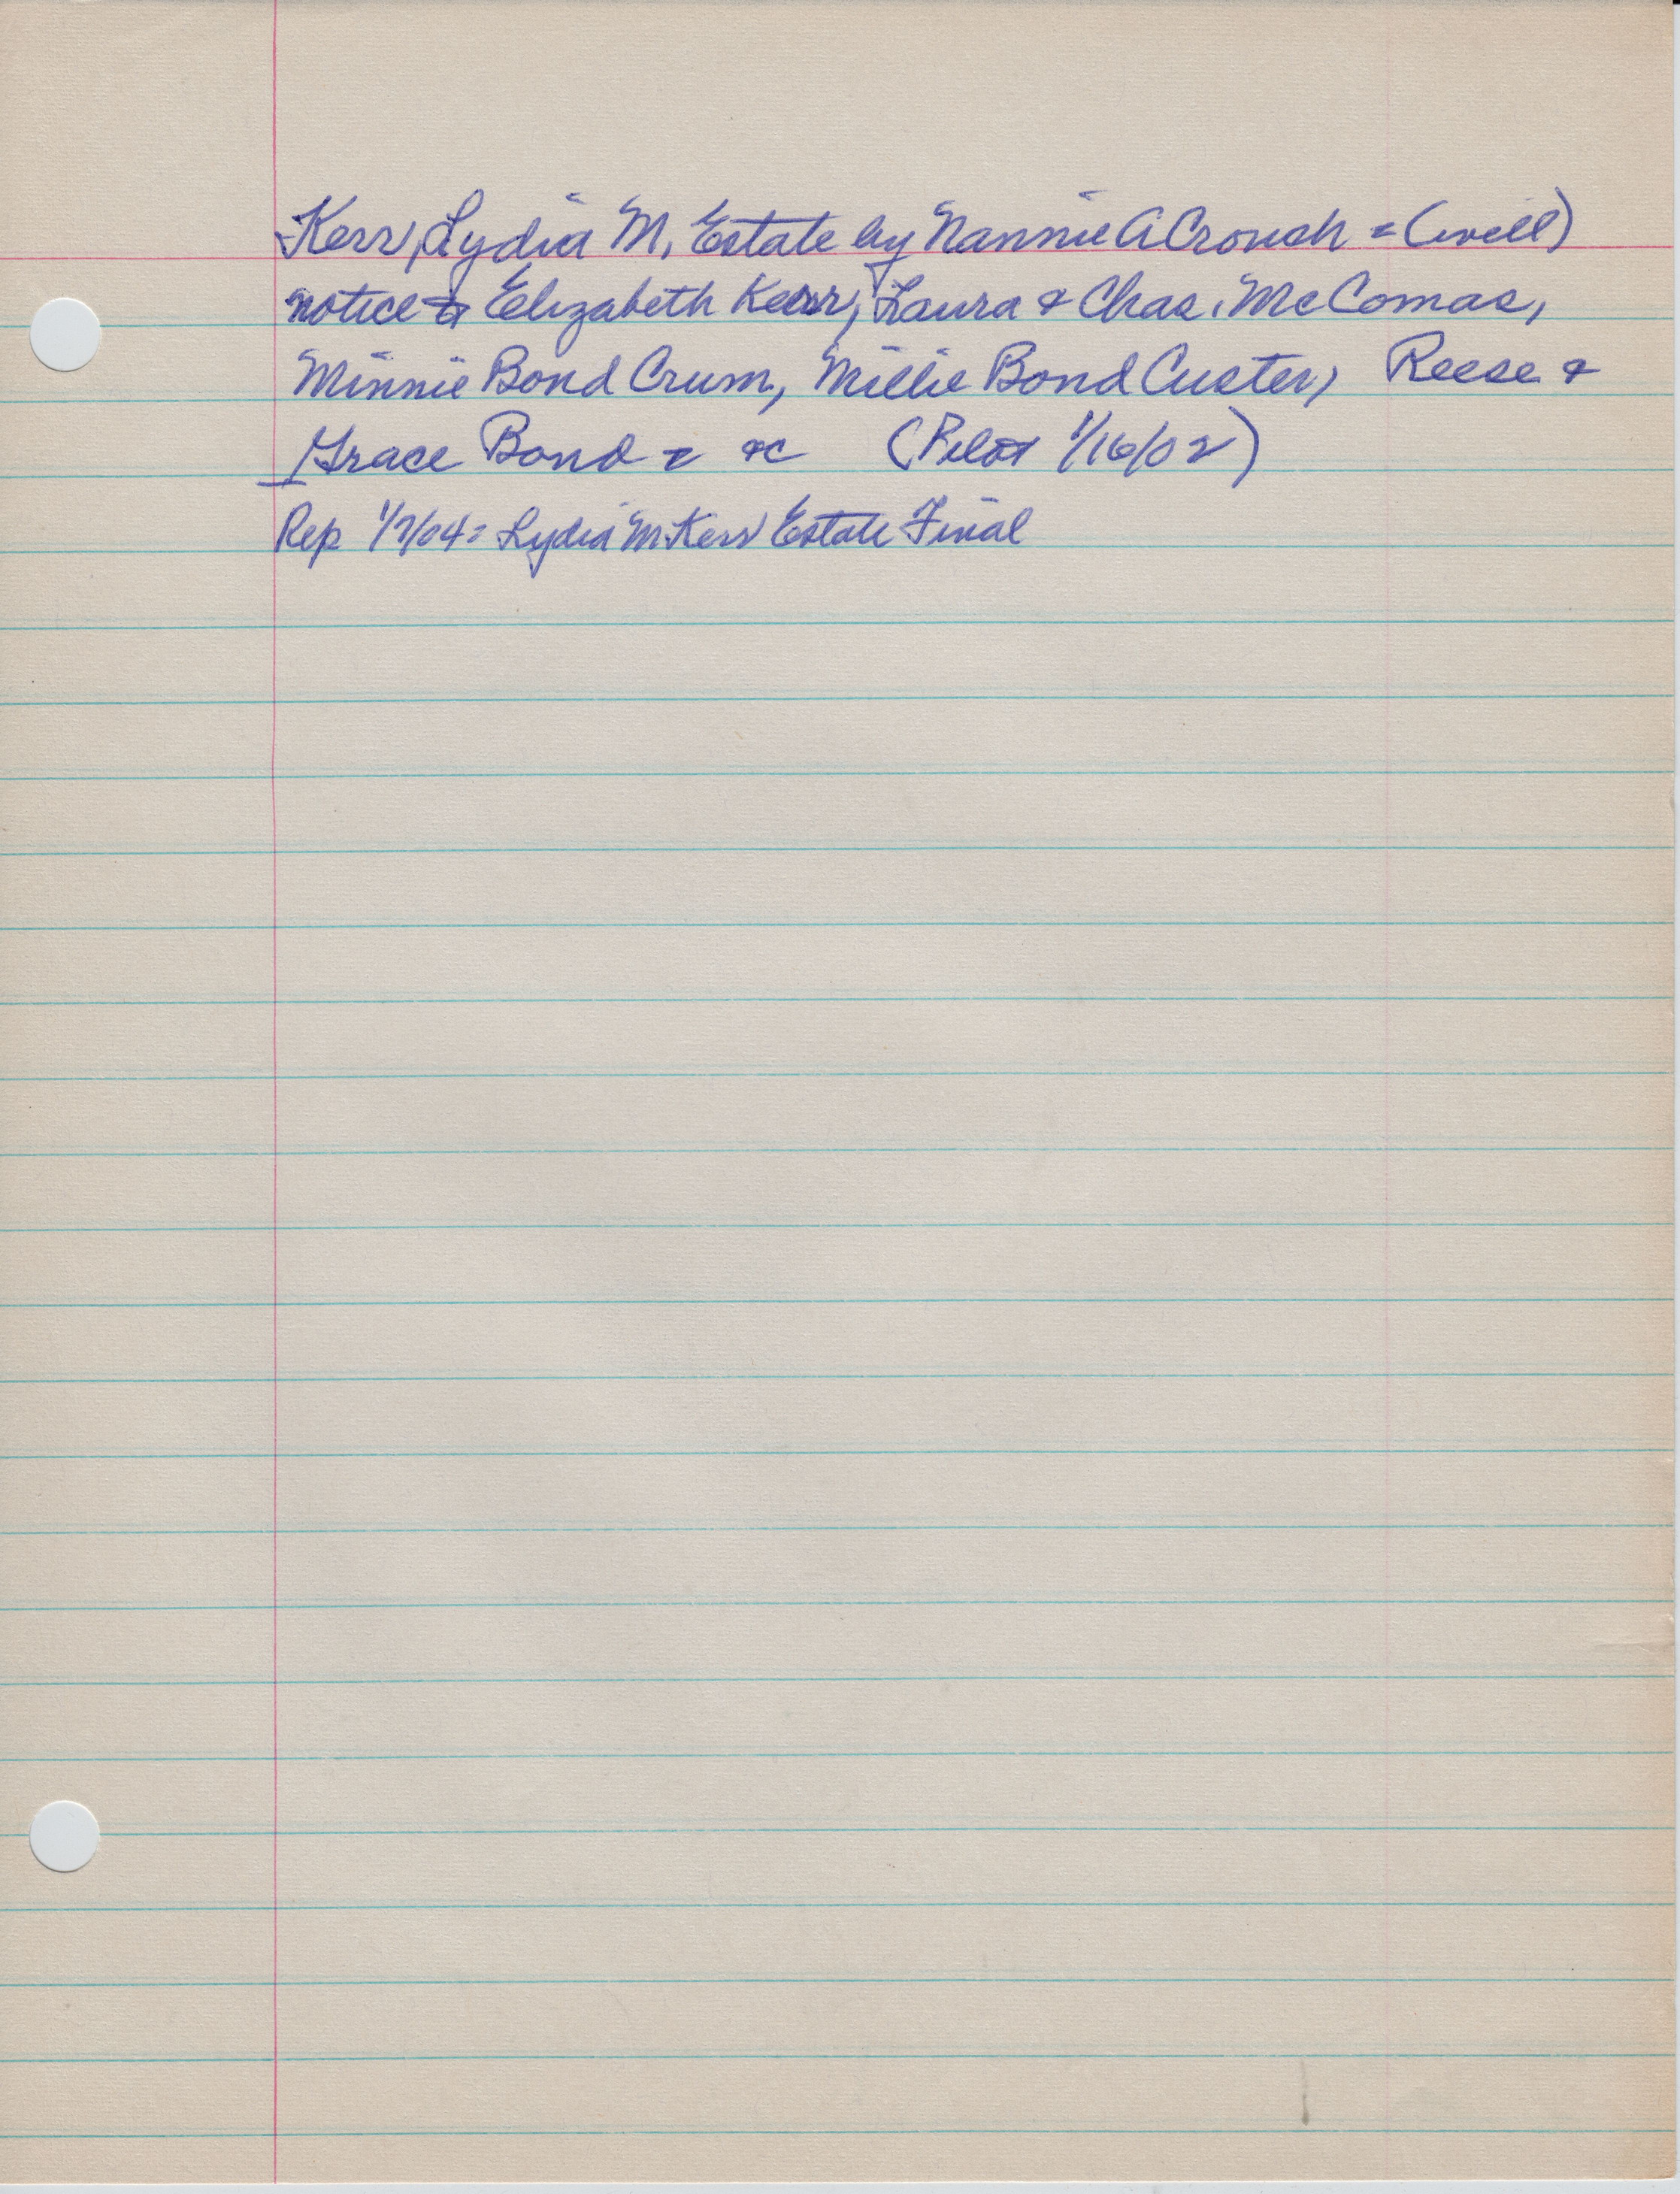 Kerr, Lydia M. Estate by Nannie A Crouch = (will)
notice to Elizabeth Kerr, Laura & Chas. McComas,
Minnie Bond Crum, Millie Bond Custer, Reese &
Grace Bond = &c (Pilot 1/16/02)
Rep 1/7/04 = Lydia M Kerr Estate Final